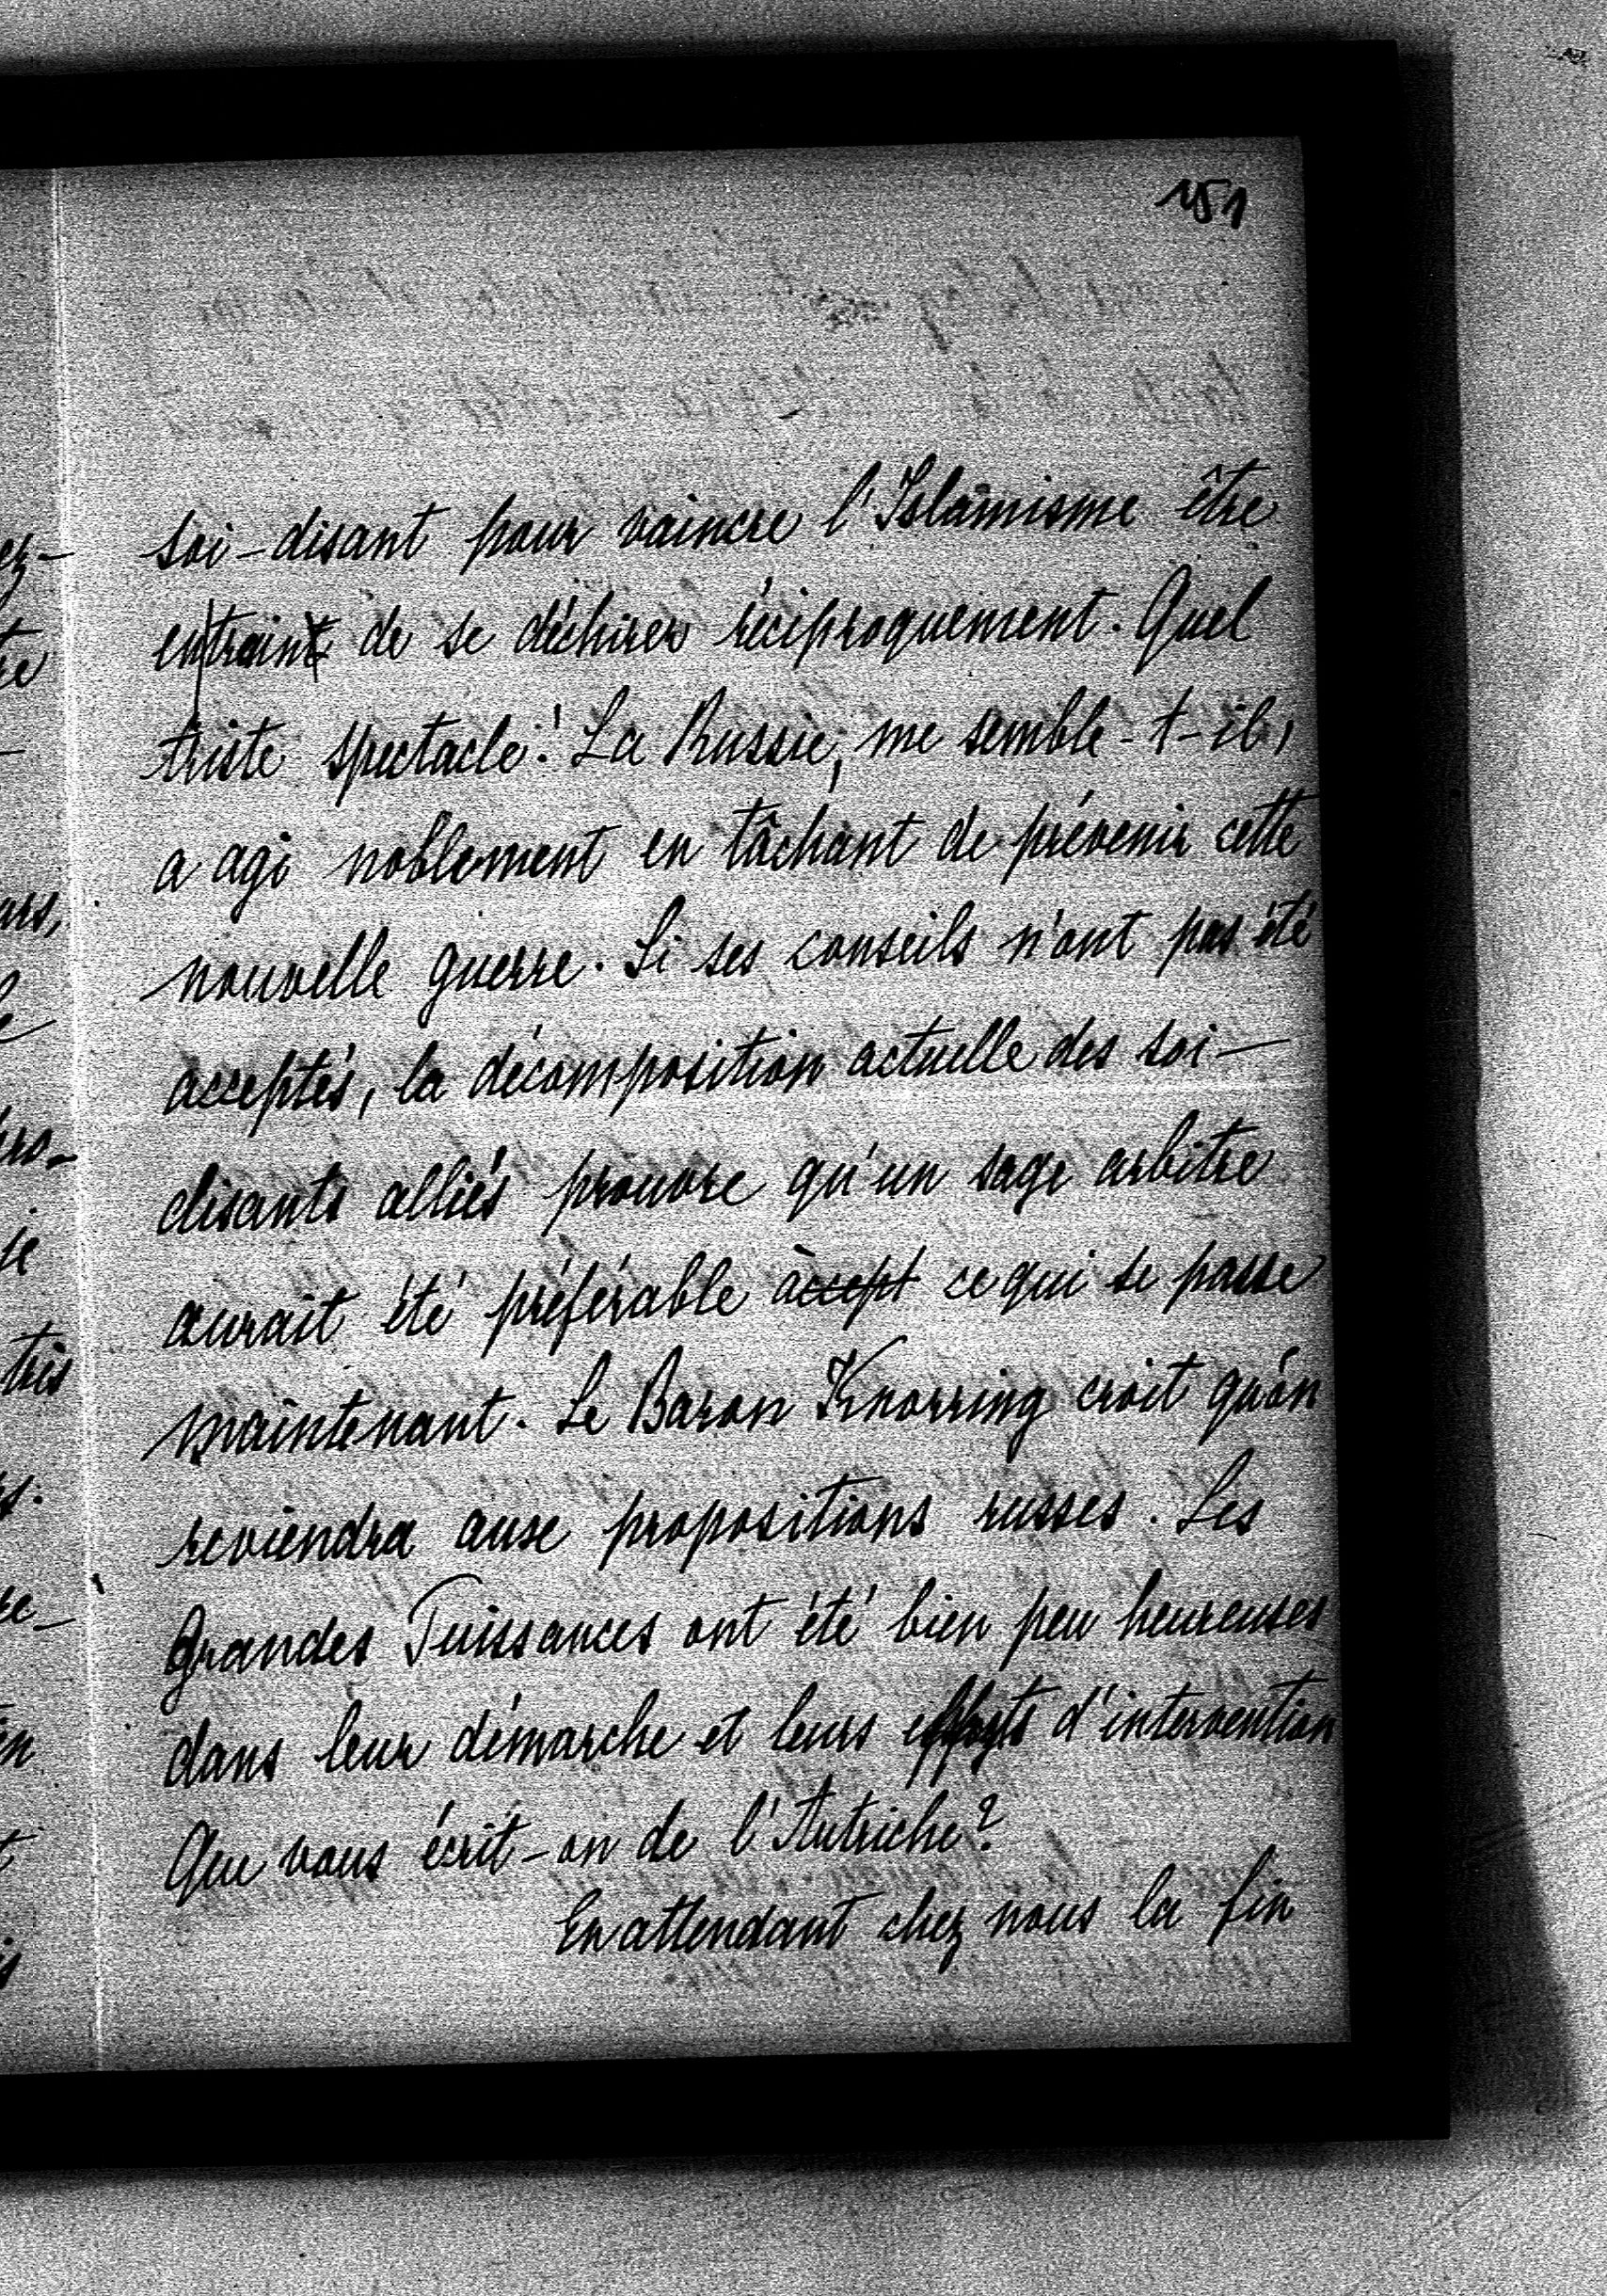 151
soi-disant pour vaincre l'Islamisme être
en train de se déchirer réciproquement. Quel
triste spectacle! La Russie, me semble-t-il,
a agi noblement en tâchant de prévenir cette
nouvelle guerre. Si ses conseils n'ont pas été
acceptés, la décomposition actuelle des soi-
disants alliés prouvre qu'un sage arbitre
aurait été préférable à ce qui se passe
maintenant. Le Baron Knorring croit qu'on
reviendra aux propositions russes. Les
Grandes Puissances ont été bien peu heureuses
dans leur démarche et leurs efforts d'intervention
Que vous écrit-on de l'Autriche?
En attendant chez nous la fin